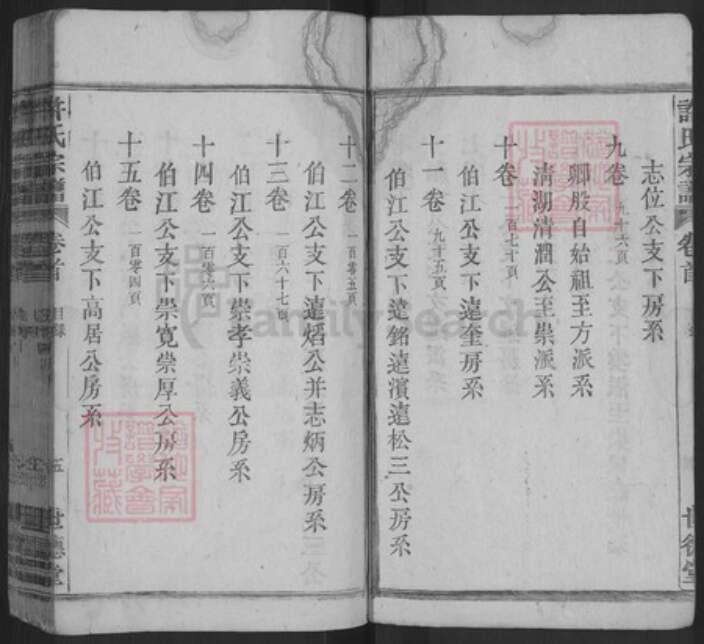 許氏宗譜 卷首 世德堂
志位公支下房系
九卷 九十六頁
卿股自始祖至方派系
清湖清澗公至崇派系
十卷 百七十頁
伯江公支下遠奎房系
十一卷 九十五頁
伯江公支下遠銘遠濱遠松三公房系
十二卷 一百零五頁
伯江公支下遠熖公并志炳公房系
十三卷 一百六十七頁
伯江公支下崇孝崇義公房系
十四卷 一百零六頁
伯江公支下崇寛崇厚公房系
十五卷 一百零四頁
伯江公支下高居公房系
許氏宗譜 卷首 目錄 五 世德堂
FamilySearch